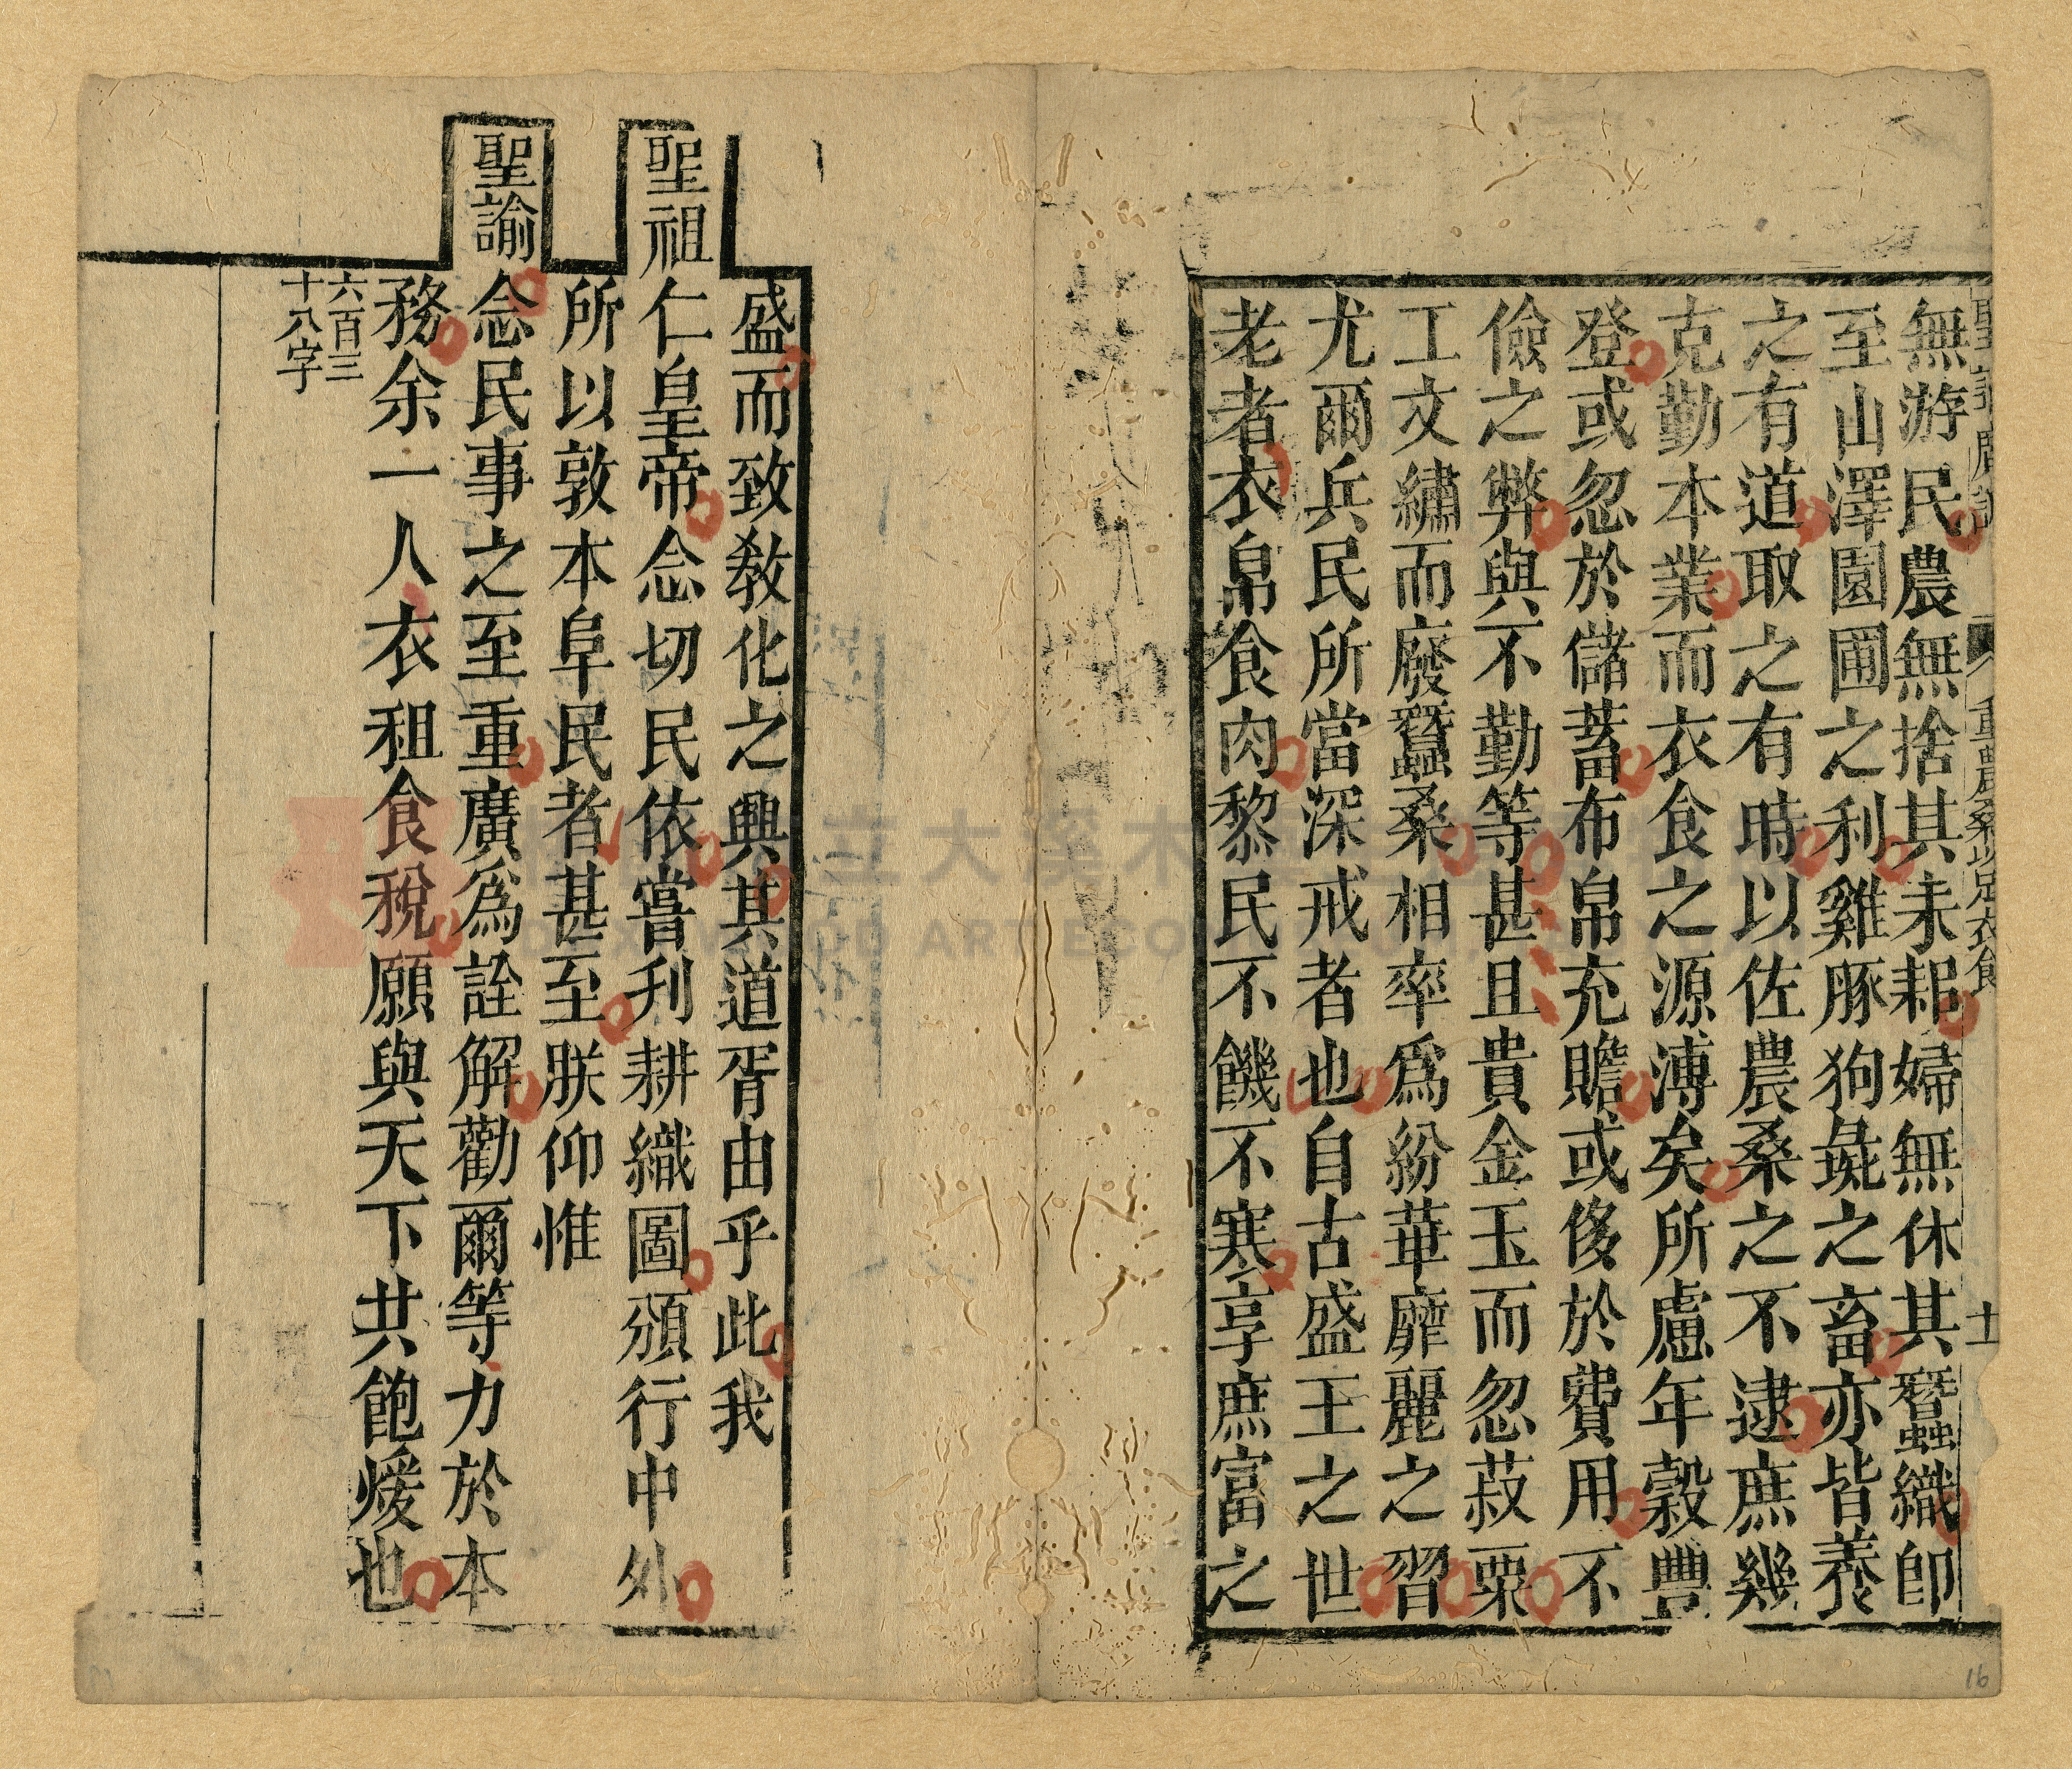 無游民農無捨其耒耜婦無休其蠶織卽
至山澤園圃之利雞豚狗彘之畜亦皆養
之有道取之有時以佐農桑之不逮庶幾
克勤本業而衣食之源溥矣所慮年穀豐
登或忽於儲蓄布帛充贍或侈於費用不
儉之弊與不勤等甚且貴金玉而忽菽粟
工文繡而廢蠶桑相率為紛華靡麗之習
尤爾兵民所當深戒者也自古盛王之世
老者衣帛食肉黎民不饑不寒享庶富之
盛而致敎化之興其道胥由乎此我
聖祖仁皇帝念切民依嘗刋耕織圖頒行中外
所以敦本阜民者甚至朕仰惟
聖諭念民事之至重廣為詮解勸爾等力於本
務余一人衣租食稅願與天下共飽煖也
六百三
十八字
重農桑以足衣食
十
16